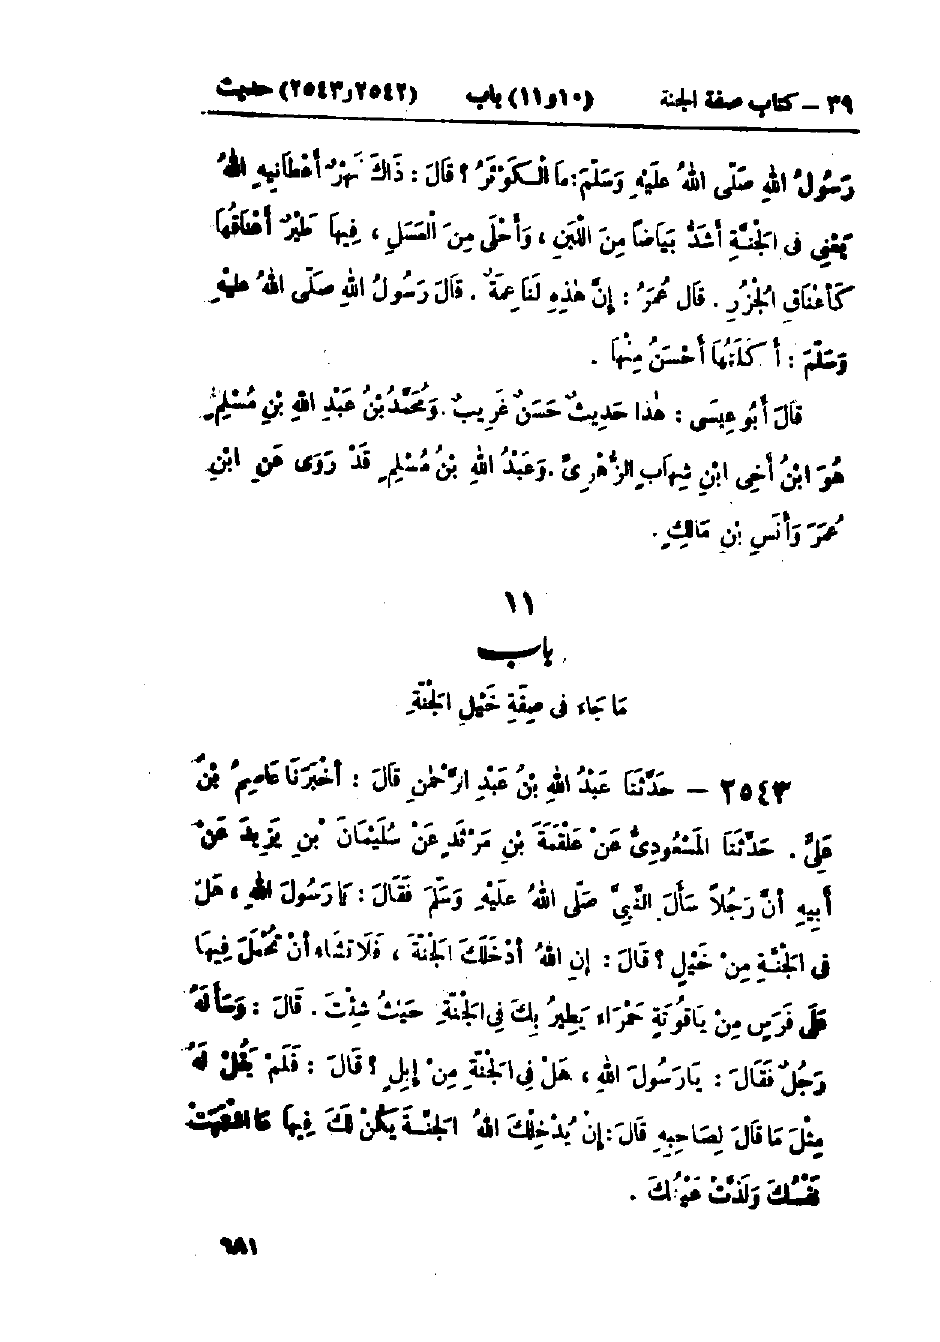 ٣٩ – كتاب صفة الجنة (١٠ و ١١) باب (٢٥٤٢ و ٢٥٤٣) حديث
رَسُولُ اللهِ صَلَّى اللهُ عَلَيْهِ وَسَلَّمَ: مَا الْكَوْثَرُ ؟ قَالَ : ذَاكَ نَهْرٌ أَعْطَانِيهِ اللهُ
يَعْنِي فِى الْجَنَّةِ أَشَدُّ بَيَاضًا مِنَ اللَّبَنِ ، وَأَحْلَى مِنَ الْعَسَلِ ، فِيهَا طَيْرٌ أَعْنَاقُهَا
كَأَعْنَاقِ الْجُزُرِ . قَالَ عُمَرُ : إِنَّ هٰذِهِ لَنَاعِمَةٌ . قَالَ رَسُولُ اللهِ صَلَّى اللهُ عَلَيْهِ
وَسَلَّمَ : أَكَلَتُهَا أَحْسَنُ مِنْهَا .
قَالَ أَبُو عِيسَى : هٰذَا حَدِيثٌ حَسَنٌ غَرِيبٌ . وَمُحَمَّدُ بْنُ عَبْدِ اللهِ بْنِ مُسْلِمٍ
هُوَ ابْنُ أَخِى ابْنِ شِهَابٍ الزُّهْرِىِّ . وَعَبْدُ اللهِ بْنُ مُسْلِمٍ قَدْ رَوَى عَنِ ابْنِ
عُمَرَ وَأَنَسِ بْنِ مَالِكٍ .
١١
باب
مَا جَاءَ فِى صِفَةِ خَيْلِ الْجَنَّةِ
٢٥٤٣ – حَدَّثَنَا عَبْدُ اللهِ بْنُ عَبْدِ الرَّحْمٰنِ قَالَ : أَخْبَرَنَا عَاصِمُ بْنُ
عَلِىٍّ . حَدَّثَنَا الْمَسْعُودِىُّ عَنْ عَلْقَمَةَ بْنِ مَرْثَدٍ عَنْ سُلَيْمَانَ بْنِ يَزِيدَ عَنْ
أَبِيهِ أَنَّ رَجُلاً سَأَلَ النَّبِىَّ صَلَّى اللهُ عَلَيْهِ وَسَلَّمَ فَقَالَ : يَا رَسُولَ اللهِ ، هَلْ
فِى الْجَنَّةِ مِنْ خَيْلٍ ؟ قَالَ : إِنِ اللهُ أَدْخَلَكَ الْجَنَّةَ ، فَلَا تَشَاءُ أَنْ تُحْمَلَ فِيهَا
عَلَى فَرَسٍ مِنْ يَاقُوتَةٍ حَمْرَاءَ يَطِيرُ بِكَ فِى الْجَنَّةِ حَيْثُ شِئْتَ . قَالَ : وَسَأَلَهُ
رَجُلٌ فَقَالَ : يَا رَسُولَ اللهِ ، هَلْ فِى الْجَنَّةِ مِنْ إِبِلٍ ؟ قَالَ : فَلَمْ يَقُلْ لَهُ
مِثْلَ مَا قَالَ لِصَاحِبِهِ قَالَ : إِنْ يُدْخِلْكَ اللهُ الْجَنَّةَ يَكُنْ لَكَ فِيهَا مَا اشْتَهَتْ
نَفْسُكَ وَلَذَّتْ عَيْنُكَ .
٦٨١